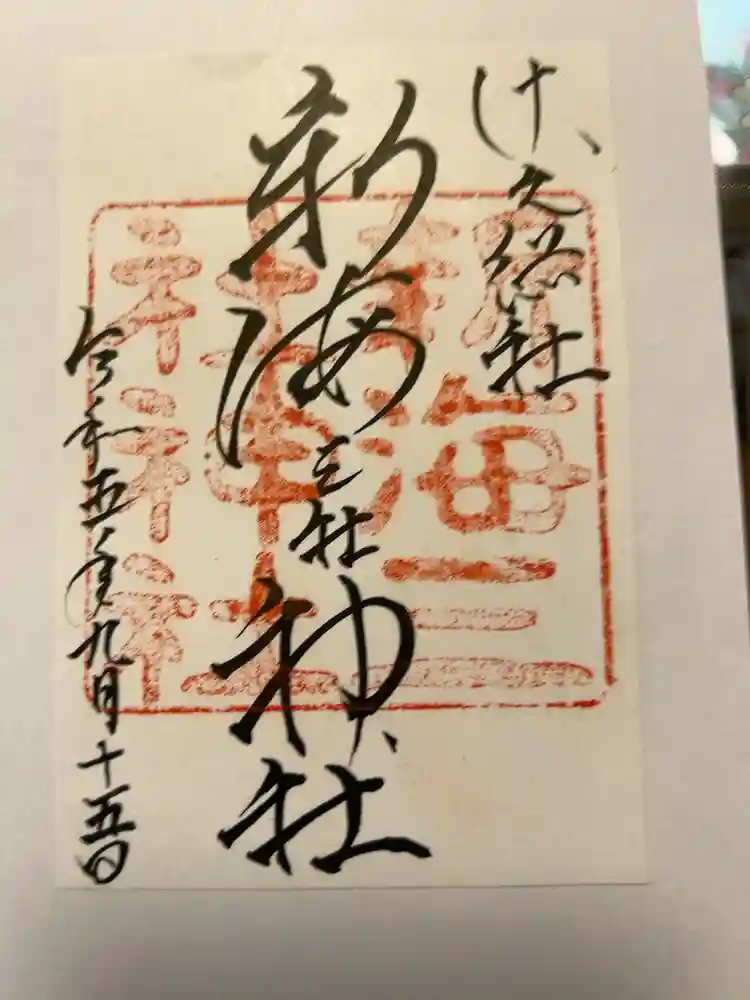 佐久総社
新海三社神社
令和五年九月十五日
新海三
社神社